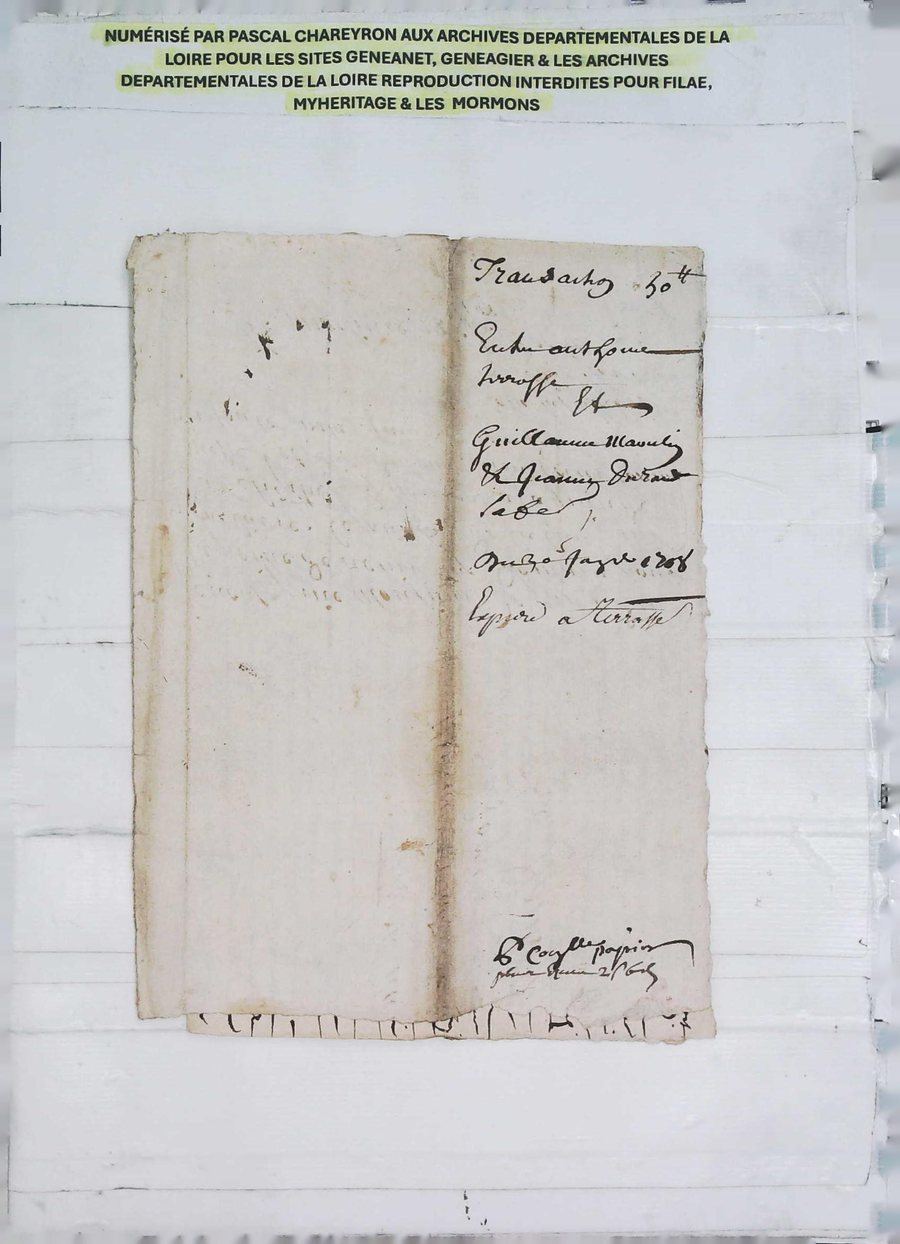 NUMÉRISÉ PAR PASCAL CHAREYRON AUX ARCHIVES DEPARTEMENTALES DE LA
LOIRE POUR LES SITES GENEANET, GENEAGIER & LES ARCHIVES
DEPARTEMENTALES DE LA LOIRE REPRODUCTION INTERDITES POUR FILAE,
MYHERITAGE & LES MORMONS
Transaction 30ᵗᵗ
Entre anthoine
terrasse
Et
Guillaume Moulin
& Jeanne Durand
Du 30ᵉ 1708
Expedié a terrasse
papier